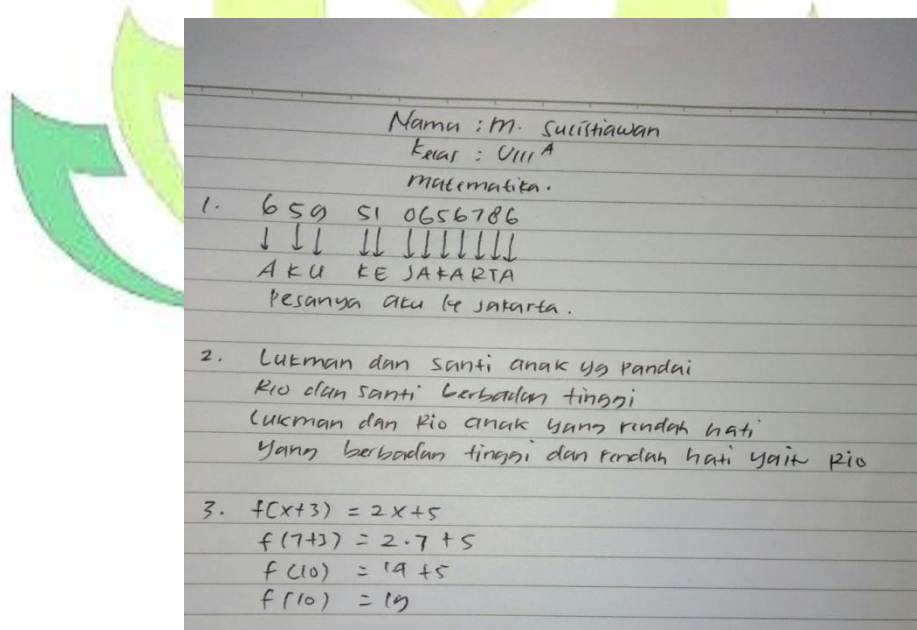 Nama : M. Sucistiawan
Kelas : VIII A
Matematika.
1. 659 51 0656786
↓↓↓ ↓↓ ↓↓↓↓↓↓↓
AKU KE JAKARTA
Pesanya aku ke Jakarta.
2. Lukman dan Santi anak yg Pandai
Rio dan Santi berbadan tinggi
Lukman dan Rio anak yang rendah hati
Yang berbadan tinggi dan rendah hati yait Rio
3. f(x+3) = 2x+5
f(7+3) = 2.7 + 5
f(10) = 14 +5
f(10) = 19